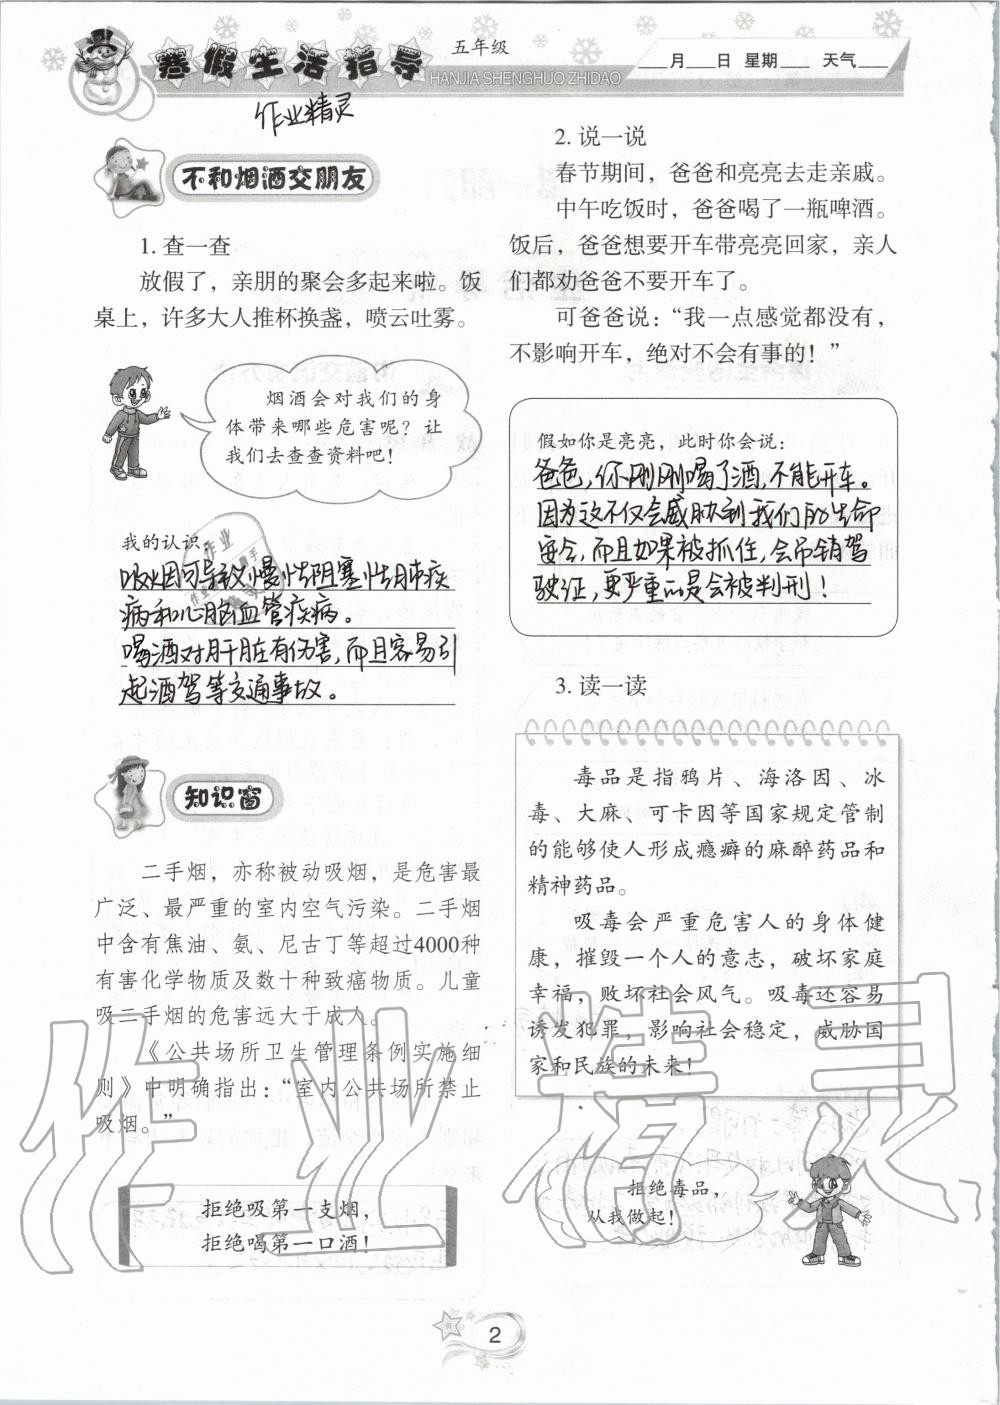 寒假生活指导
五年级
HANJIA SHENGHUO ZHIDAO
___月___日 星期___ 天气___
作业精灵
不和烟酒交朋友
1. 查一查
放假了，亲朋的聚会多起来啦。饭
桌上，许多大人推杯换盏，喷云吐雾。
烟酒会对我们的身
体带来哪些危害呢？让
我们去查查资料吧！
我的认识：
吸烟可导致慢性阻塞性肺疾
病和心脑血管疾病。
喝酒对肝脏有伤害，而且容易引
起酒驾等交通事故。
知识窗
二手烟，亦称被动吸烟，是危害最
广泛、最严重的室内空气污染。二手烟
中含有焦油、氨、尼古丁等超过4000种
有害化学物质及数十种致癌物质。儿童
吸二手烟的危害远大于成人。
《公共场所卫生管理条例实施细
则》中明确指出：“室内公共场所禁止
吸烟。”
拒绝吸第一支烟，
拒绝喝第一口酒！
2. 说一说
春节期间，爸爸和亮亮去走亲戚。
中午吃饭时，爸爸喝了一瓶啤酒。
饭后，爸爸想要开车带亮亮回家，亲人
们都劝爸爸不要开车了。
可爸爸说：“我一点感觉都没有，
不影响开车，绝对不会有事的！”
假如你是亮亮，此时你会说：
爸爸，你刚刚喝了酒，不能开车。
因为这不仅会威胁到我们的生命
安全，而且如果被抓住，会吊销驾
驶证，更严重的是会被判刑！
3. 读一读
毒品是指鸦片、海洛因、冰
毒、大麻、可卡因等国家规定管制
的能够使人形成瘾癖的麻醉药品和
精神药品。
吸毒会严重危害人的身体健
康，摧毁一个人的意志，破坏家庭
幸福，败坏社会风气。吸毒还容易
诱发犯罪，影响社会稳定，威胁国
家和民族的未来！
拒绝毒品，
从我做起！
作业精灵
2